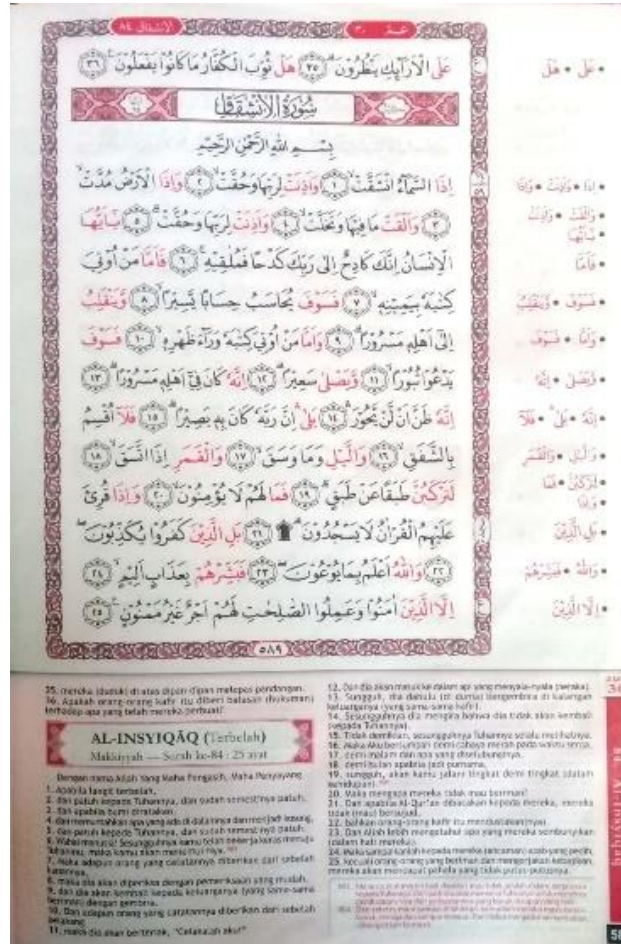 عَلَى الْاَرَاۤىِٕكِ يَنْظُرُوْنَۗ ٣٥ هَلْ ثُوِّبَ الْكُفَّارُ مَا كَانُوْا يَفْعَلُوْنَ ٣٦
سُوْرَةُ الْاِنْشِقَاقِ
بِسْمِ اللّٰهِ الرَّحْمٰنِ الرَّحِيْمِ
اِذَا السَّمَاۤءُ انْشَقَّتْۙ ١ وَاَذِنَتْ لِرَبِّهَا وَحُقَّتْۙ ٢ وَاِذَا الْاَرْضُ مُدَّتْۙ
٣ وَاَلْقَتْ مَا فِيْهَا وَتَخَلَّتْۙ ٤ وَاَذِنَتْ لِرَبِّهَا وَحُقَّتْۗ ٥ يٰٓاَيُّهَا
الْاِنْسَانُ اِنَّكَ كَادِحٌ اِلٰى رَبِّكَ كَدْحًا فَمُلٰقِيْهِۚ ٦ فَاَمَّا مَنْ اُوْتِيَ
كِتٰبَهٗ بِيَمِيْنِهٖۙ ٧ فَسَوْفَ يُحَاسَبُ حِسَابًا يَّسِيْرًاۙ ٨ وَّيَنْقَلِبُ
اِلٰٓى اَهْلِهٖ مَسْرُوْرًاۗ ٩ وَاَمَّا مَنْ اُوْتِيَ كِتٰبَهٗ وَرَاۤءَ ظَهْرِهٖۙ ١٠ فَسَوْفَ
يَدْعُوْا ثُبُوْرًاۙ ١١ وَّيَصْلٰى سَعِيْرًاۗ ١٢ اِنَّهٗ كَانَ فِيْٓ اَهْلِهٖ مَسْرُوْرًاۗ ١٣
اِنَّهٗ ظَنَّ اَنْ لَّنْ يَّحُوْرَۛ ١٤ بَلٰىۛ اِنَّ رَبَّهٗ كَانَ بِهٖ بَصِيْرًاۗ ١٥ فَلَآ اُقْسِمُ
بِالشَّفَقِۙ ١٦ وَالَّيْلِ وَمَا وَسَقَۙ ١٧ وَالْقَمَرِ اِذَا اتَّسَقَۙ ١٨
لَتَرْكَبُنَّ طَبَقًا عَنْ طَبَقٍۗ ١٩ فَمَا لَهُمْ لَا يُؤْمِنُوْنَۙ ٢٠ وَاِذَا قُرِئَ
عَلَيْهِمُ الْقُرْاٰنُ لَا يَسْجُدُوْنَۗ ۩ ٢١ بَلِ الَّذِيْنَ كَفَرُوْا يُكَذِّبُوْنَۖ
٢٢ وَاللّٰهُ اَعْلَمُ بِمَا يُوْعُوْنَۖ ٢٣ فَبَشِّرْهُمْ بِعَذَابٍ اَلِيْمٍۙ ٢٤
اِلَّا الَّذِيْنَ اٰمَنُوْا وَعَمِلُوا الصّٰلِحٰتِ لَهُمْ اَجْرٌ غَيْرُ مَمْنُوْنٍ ٢٥
٥٨٩
• عَلَى • هَلْ
• اِذَا • وَاَذِنَتْ • وَاِذَا
• وَاَلْقَتْ • وَاَذِنَتْ
• يٰٓاَيُّهَا
• فَاَمَّا
• فَسَوْفَ • وَّيَنْقَلِبُ
• وَاَمَّا • فَسَوْفَ
• وَّيَصْلٰى • اِنَّهٗ
• اِنَّهٗ • بَلٰى • فَلَآ
• وَالَّيْلِ • وَالْقَمَرِ
• لَتَرْكَبُنَّ • فَمَا
• وَاِذَا
• بَلِ الَّذِيْنَ
• وَاللّٰهُ • فَبَشِّرْهُمْ
• اِلَّا الَّذِيْنَ
35. mereka (duduk) di atas dipan-dipan melepas pandangan.
36. Apakah orang-orang kafir itu diberi balasan (hukuman)
terhadap apa yang telah mereka perbuat?
AL-INSYIQĀQ (Terbelah)
Makkiyyah — Surah ke-84 : 25 ayat
Dengan nama Allah Yang Maha Pengasih, Maha Penyayang
1. Apabila langit terbelah,
2. dan patuh kepada Tuhannya, dan sudah semestinya patuh.
3. dan apabila bumi diratakan
4. dan memuntahkan apa yang ada di dalamnya dan menjadi kosong.
5. dan patuh kepada Tuhannya, dan sudah semestinya patuh.
6. Wahai manusia! Sesungguhnya kamu telah bekerja keras menuju
Tuhanmu, maka kamu akan menemui-Nya.
7. Maka adapun orang yang catatannya diberikan dari sebelah
kanannya,
8. maka dia akan diperiksa dengan pemeriksaan yang mudah.
9. dan dia akan kembali kepada keluarganya (yang sama-sama
beriman) dengan gembira.
10. Dan adapun orang yang catatannya diberikan dari sebelah
belakang,
11. maka dia akan berteriak, "Celakalah aku!"
12. Dan dia akan masuk ke dalam api yang menyala-nyala (neraka).
13. Sungguh, dia dahulu (di dunia) bergembira di kalangan
keluarganya (yang sama-sama kafir).
14. Sesungguhnya dia mengira bahwa dia tidak akan kembali
(kepada Tuhannya).
15. Tidak demikian, sesungguhnya Tuhannya selalu melihatnya.
16. Maka Aku bersumpah demi cahaya merah pada waktu senja.
17. demi malam dan apa yang diselubunginya,
18. demi bulan apabila jadi purnama,
19. sungguh, akan kamu jalani tingkat demi tingkat (dalam
kehidupan).
20. Maka mengapa mereka tidak mau beriman?
21. Dan apabila Al-Qur'an dibacakan kepada mereka, mereka
tidak (mau) bersujud.
22. bahkan orang-orang kafir itu mendustakan(nya).
23. Dan Allah lebih mengetahui apa yang mereka sembunyikan
(dalam hati mereka).
24. Maka sampaikanlah kepada mereka (ancaman) azab yang pedih,
25. kecuali orang-orang yang beriman dan mengerjakan kebajikan,
mereka akan mendapat pahala yang tidak putus-putusnya.
84. Al-Insyiqāq